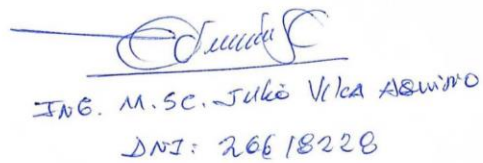 ING. M.Sc. Julio Vilca Aquino
DNI: 26618228